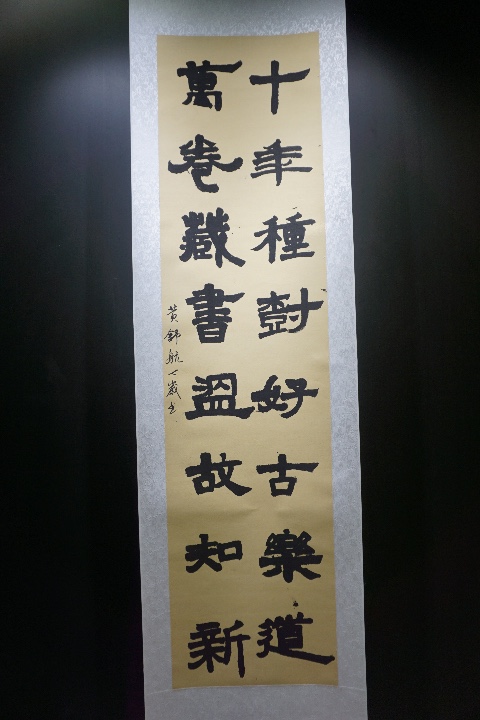 十年種尌好古樂道
萬卷藏書溫故知新
黃錦航七歲書